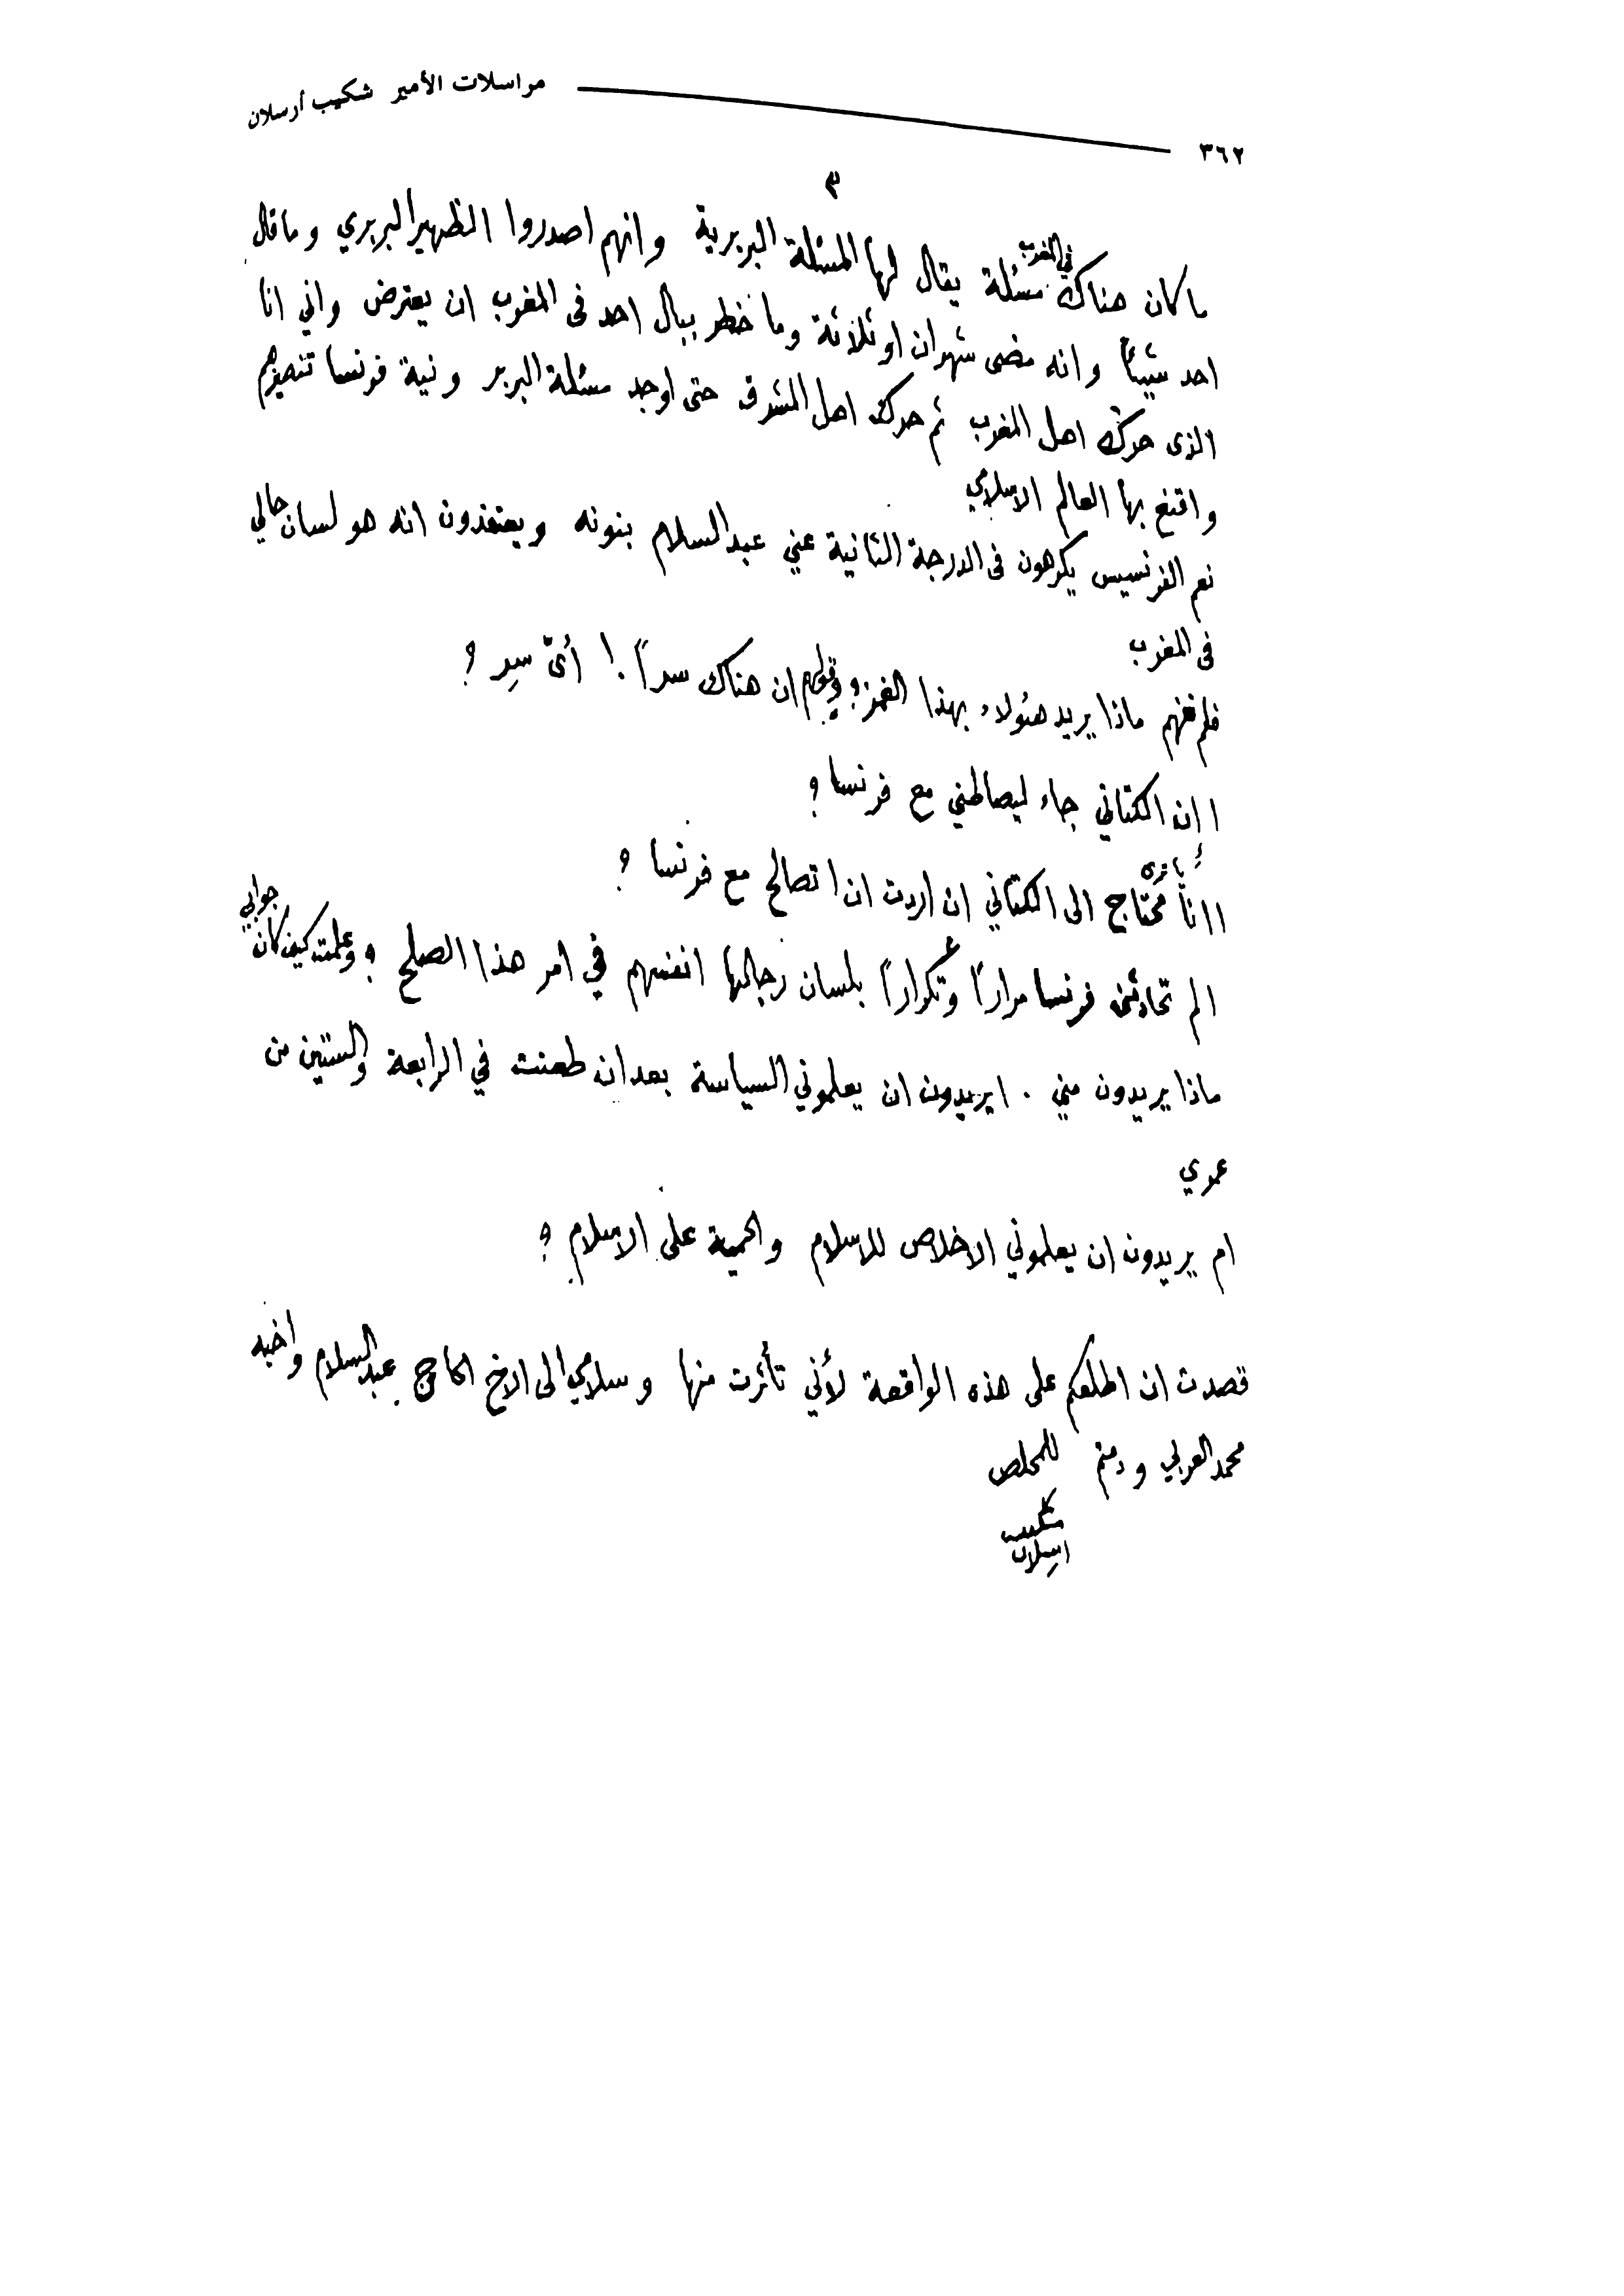 ٣٦٢ مراسلات الأمير شكيب أرسلان
٣
ما كان هناك في المغرب مسئلة يقال لها المسئلة البربرية وانهم اصدروا الظهير البربري وما قال
احد شيئاً وانه مضى شهران او ثلاثة وما خطر ببال احد فى المغرب ان يعترض واني انا
الذى حركت اهل المغرب ثم حركت اهل المشرق حتى اوجد مسئلة البربر ونية فرنسا تنصيرهم
واقتنع بها العالم الاسلامي
نعم الفرنسيس يكرهون فى الدرجة الثانية عني عبد السلام بنونه ويعتقدون انه هو لسان حالي
فى المغرب
فلم نفهم ماذا يريد هئولاء بهذا الغمز؟ وقولهم ان هناك سراً ! أىّ سِر ؟
اإن الكتاني جاء ليصالحني مع فرنسا ؟
اانا يا ترى محتاج الى الكتاني ان اردت ان اتصالح مع فرنسا ؟
الم تحادثني فرنسا مراراً وتكراراً بلسان رجالها انفسهم في امر هذا الصلح ؟ وعلمت كيف كان جوابي
ماذا يريدون مني . ايريدون ان يعلموني السياسة بعد ان طعنت في الرابعة والستين من
عمري
ام يريدون ان يعلموني الاخلاص للاسلام والحمية على الاسلام ؟
قصدت ان اطلعكم على هذه الواقعة لأني تأثرت منها وسلامي الى الاخ الحاج عبد السلام واخيه
محمد العربي ودمتم للمخلص
شكيب
ارسلان